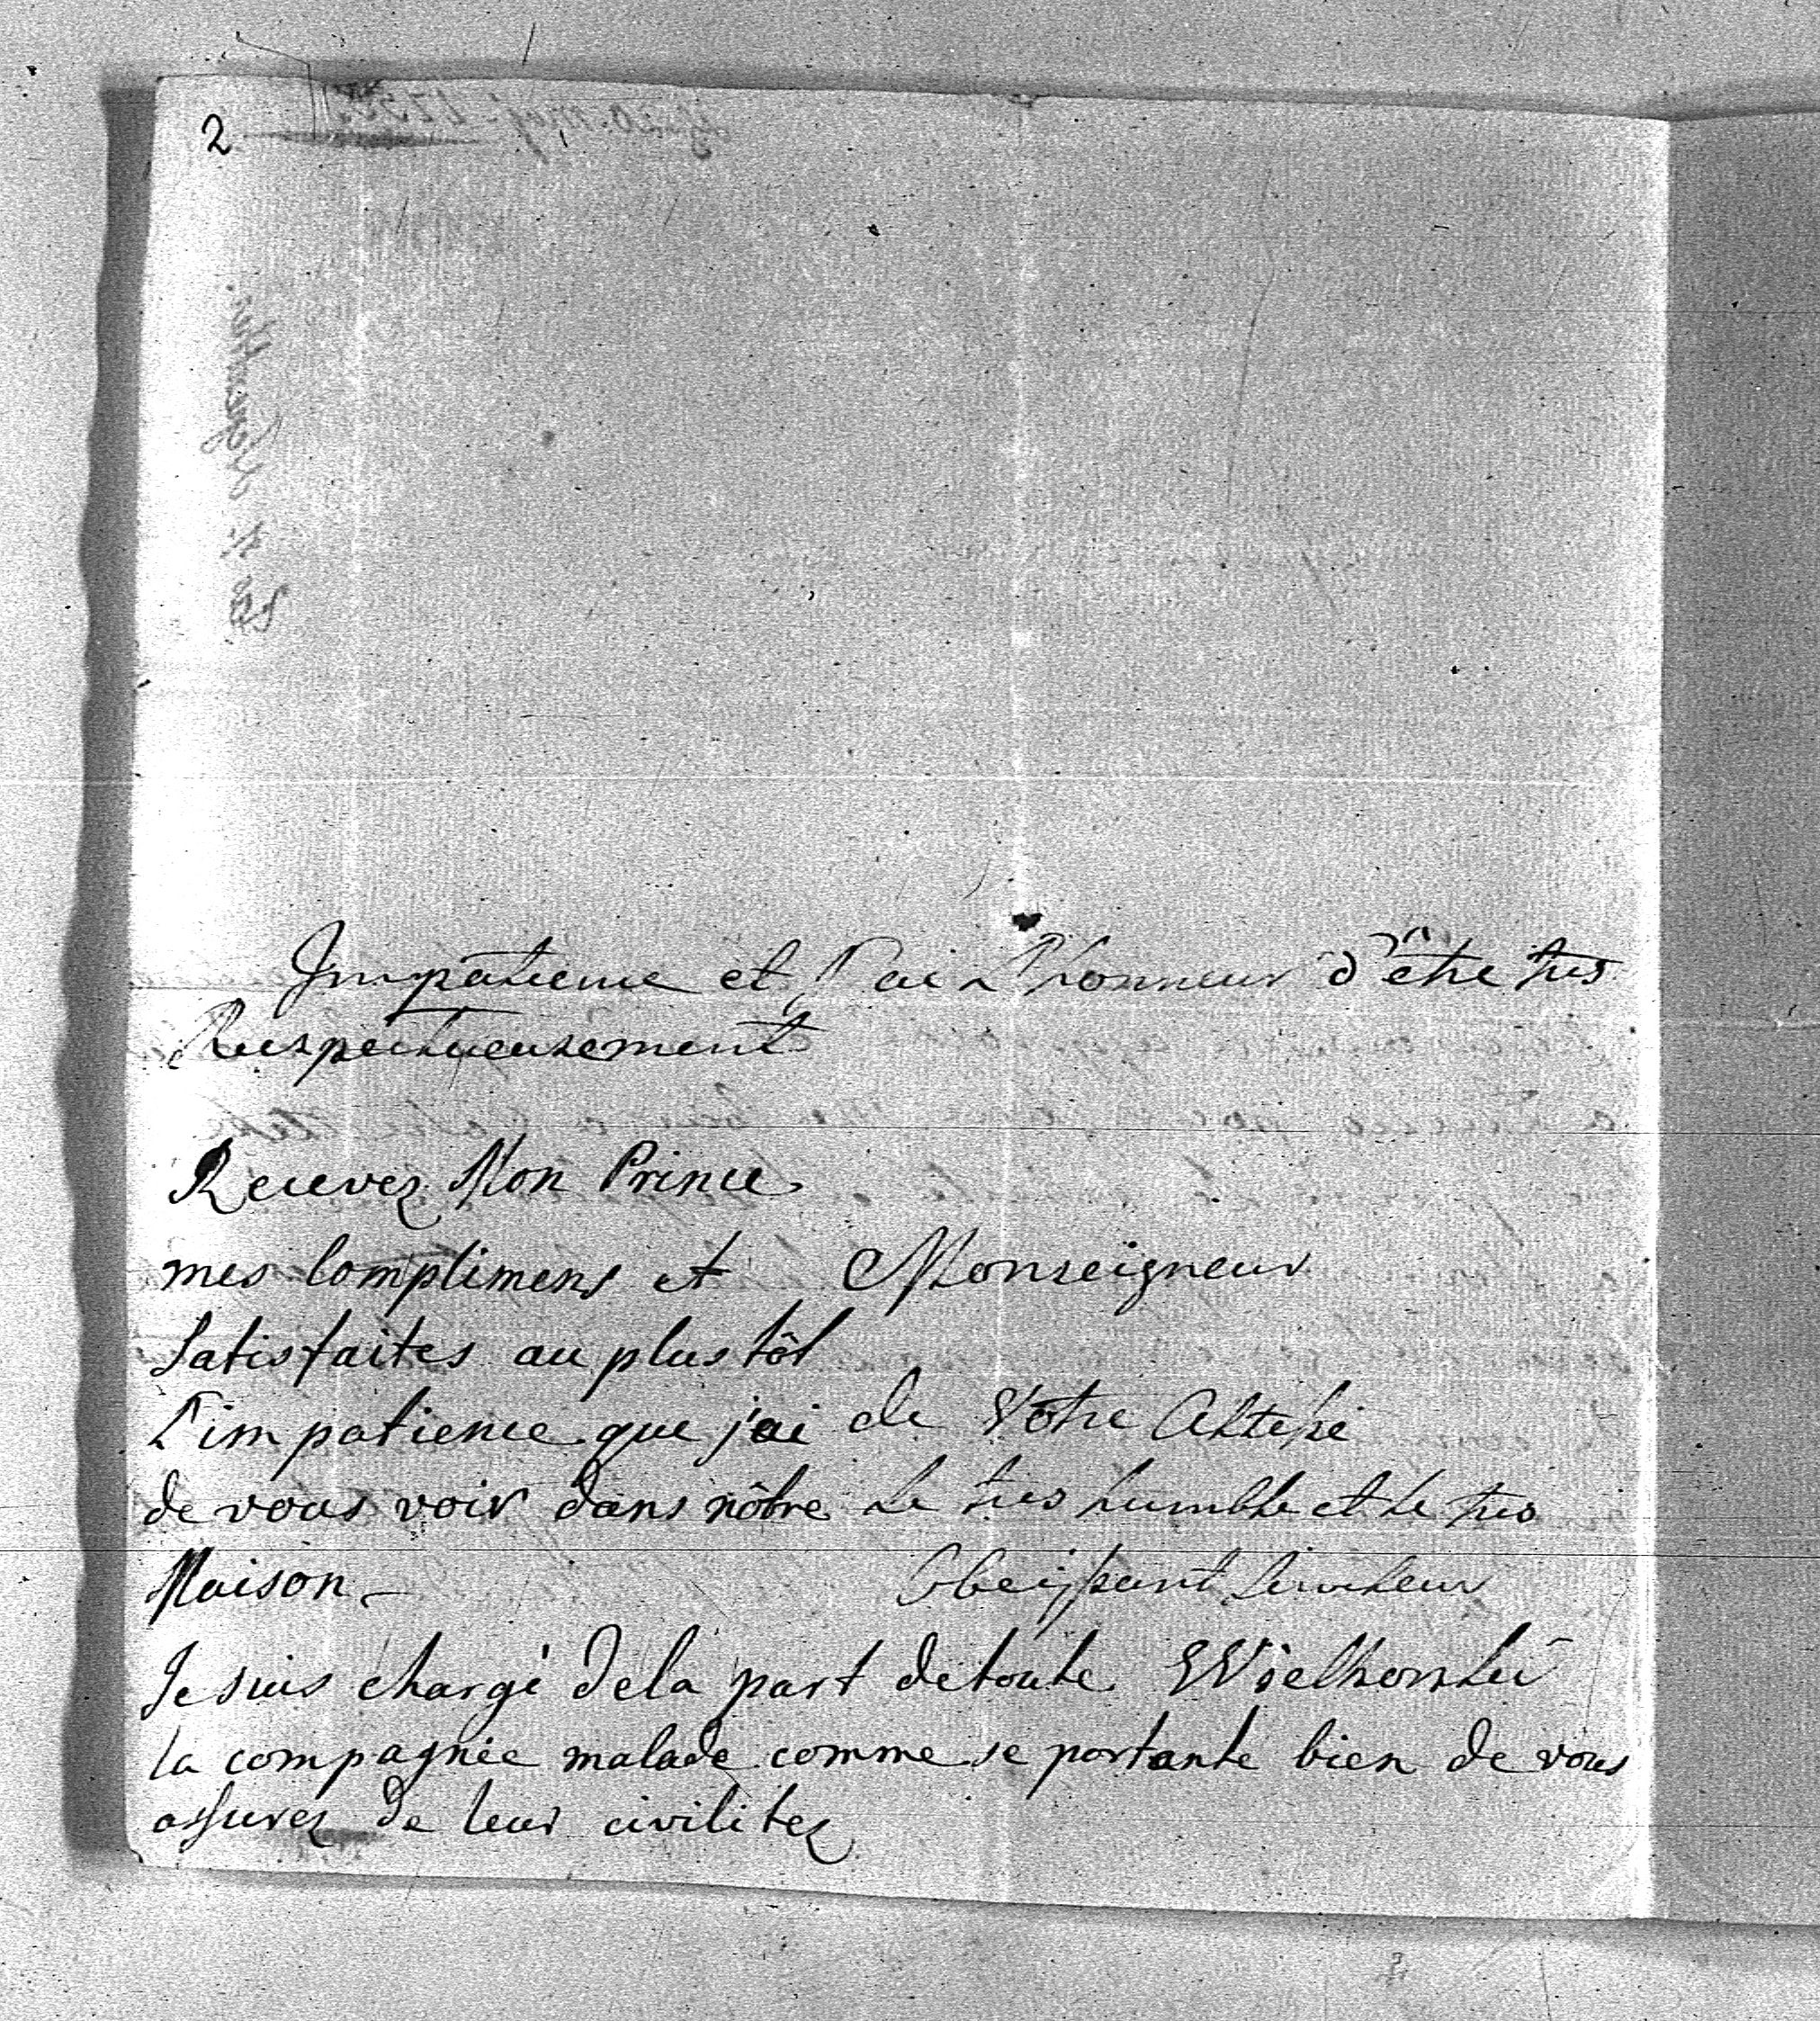 2
Impatience et J'ai L'honneur d'être tres
Ruespectueusement
Monseigneur
de Votre Altesse
Le tres humble et le tres
Obeissant Serviteur
Wielhorski
Recevez Mon Prince
mes complimens et
satisfaites au plus tôt
L'impatience que j'ai
de vous voir dans nôtre
Maison -
Je suis chargé de la part de toute
la compagnée malade comme se portante bien de vous
assurez de leur civilitez